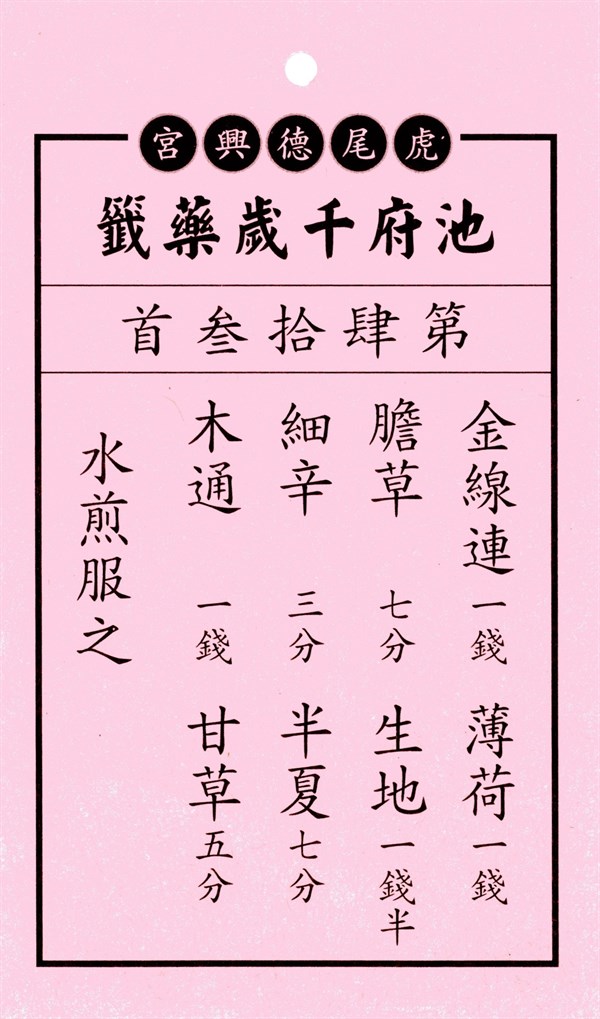 虎尾德興宮
池府千歲藥籤
第肆拾叁首
金線連一錢 薄荷一錢
膽草 七分 生地一錢半
細辛 三分 半夏七分
木通 一錢 甘草五分
水煎服之